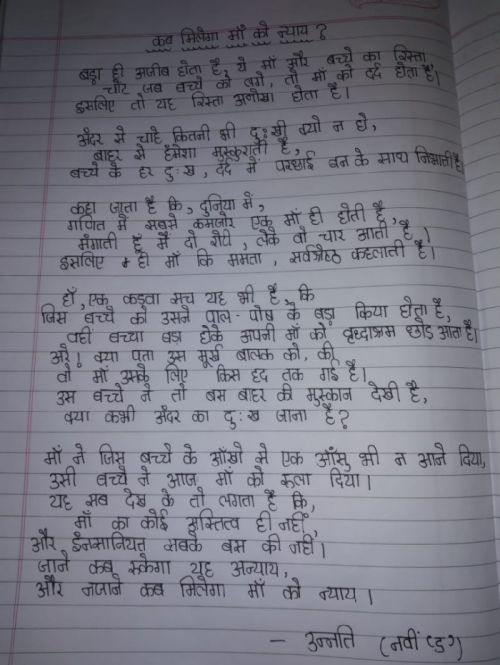 कब मिलेगा माँ को न्याय ?
बड़ा ही अजीब होता है, ये माँ और बच्चे का रिस्ता
चोट जब बच्चे को लगे, तो माँ को दर्द होता है।
इसलिए तो यह रिस्ता अनोखा होता है।
अंदर से चाहे कितनी भी दुःखी क्यो न हो,
बाहर से हमेशा मुस्कुराती है,
बच्चे के हर दुःख, दर्द में परछाई बन के साथ निभाती है।
कहा जाता है कि, दुनिया में,
गणित में सबसे कमजोर एक माँ ही होती है,
मंगाती हूँ मैं दो रोटी, लेके वो चार आती है।
इसलिए ही माँ कि ममता, सर्वश्रेष्ठ कहलाती है।
हाँ, एक कड़वा सच यह भी है, कि
जिस बच्चे को उसने पाल-पोष के बड़ा किया होता है,
वही बच्चा बड़ा होके अपनी माँ को वृध्दाश्रम छोड आता है।
अरे! क्या पता उस मूर्ख बालक को, की
वो माँ उसके लिए किस हद तक गई है।
उस बच्चे ने तो बस बाहर की मुस्कान देखी है,
क्या कभी अंदर का दुःख जाना है?
माँ ने जिस बच्चे के आँखो से एक आँसु भी न आने दिया,
उसी बच्चे ने आज माँ को रूला दिया।
यह सब देख के तो लगता है कि,
माँ का कोई अस्तित्व ही नहीं,
और ईनसानियत सबके बस की नहीं।
जाने कब रुकेगा यह अन्याय,
और नजाने कब मिलेगा माँ को न्याय।
— उन्नति (नवीं 'ड')